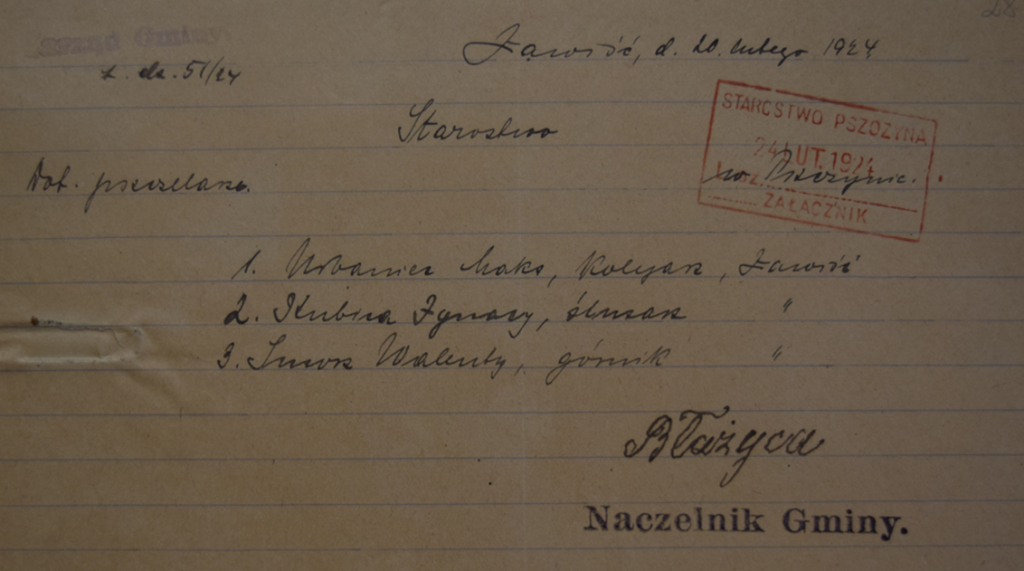 28
Urząd Gminy
L. dz. 51/24
Zawiść, d. 20 lutego 1924
Starostwo
STAROSTWO PSZCZYNA
24 LUT. 1924
w Pszczynie.
ZAŁĄCZNIK
Dot. pszczelarz.
1. Urbaniec Maks, kolejarz, Zawiść
2. Kubica Ignacy, ślusarz "
3. Walenty, górnik "
Błażyca
Naczelnik Gminy.